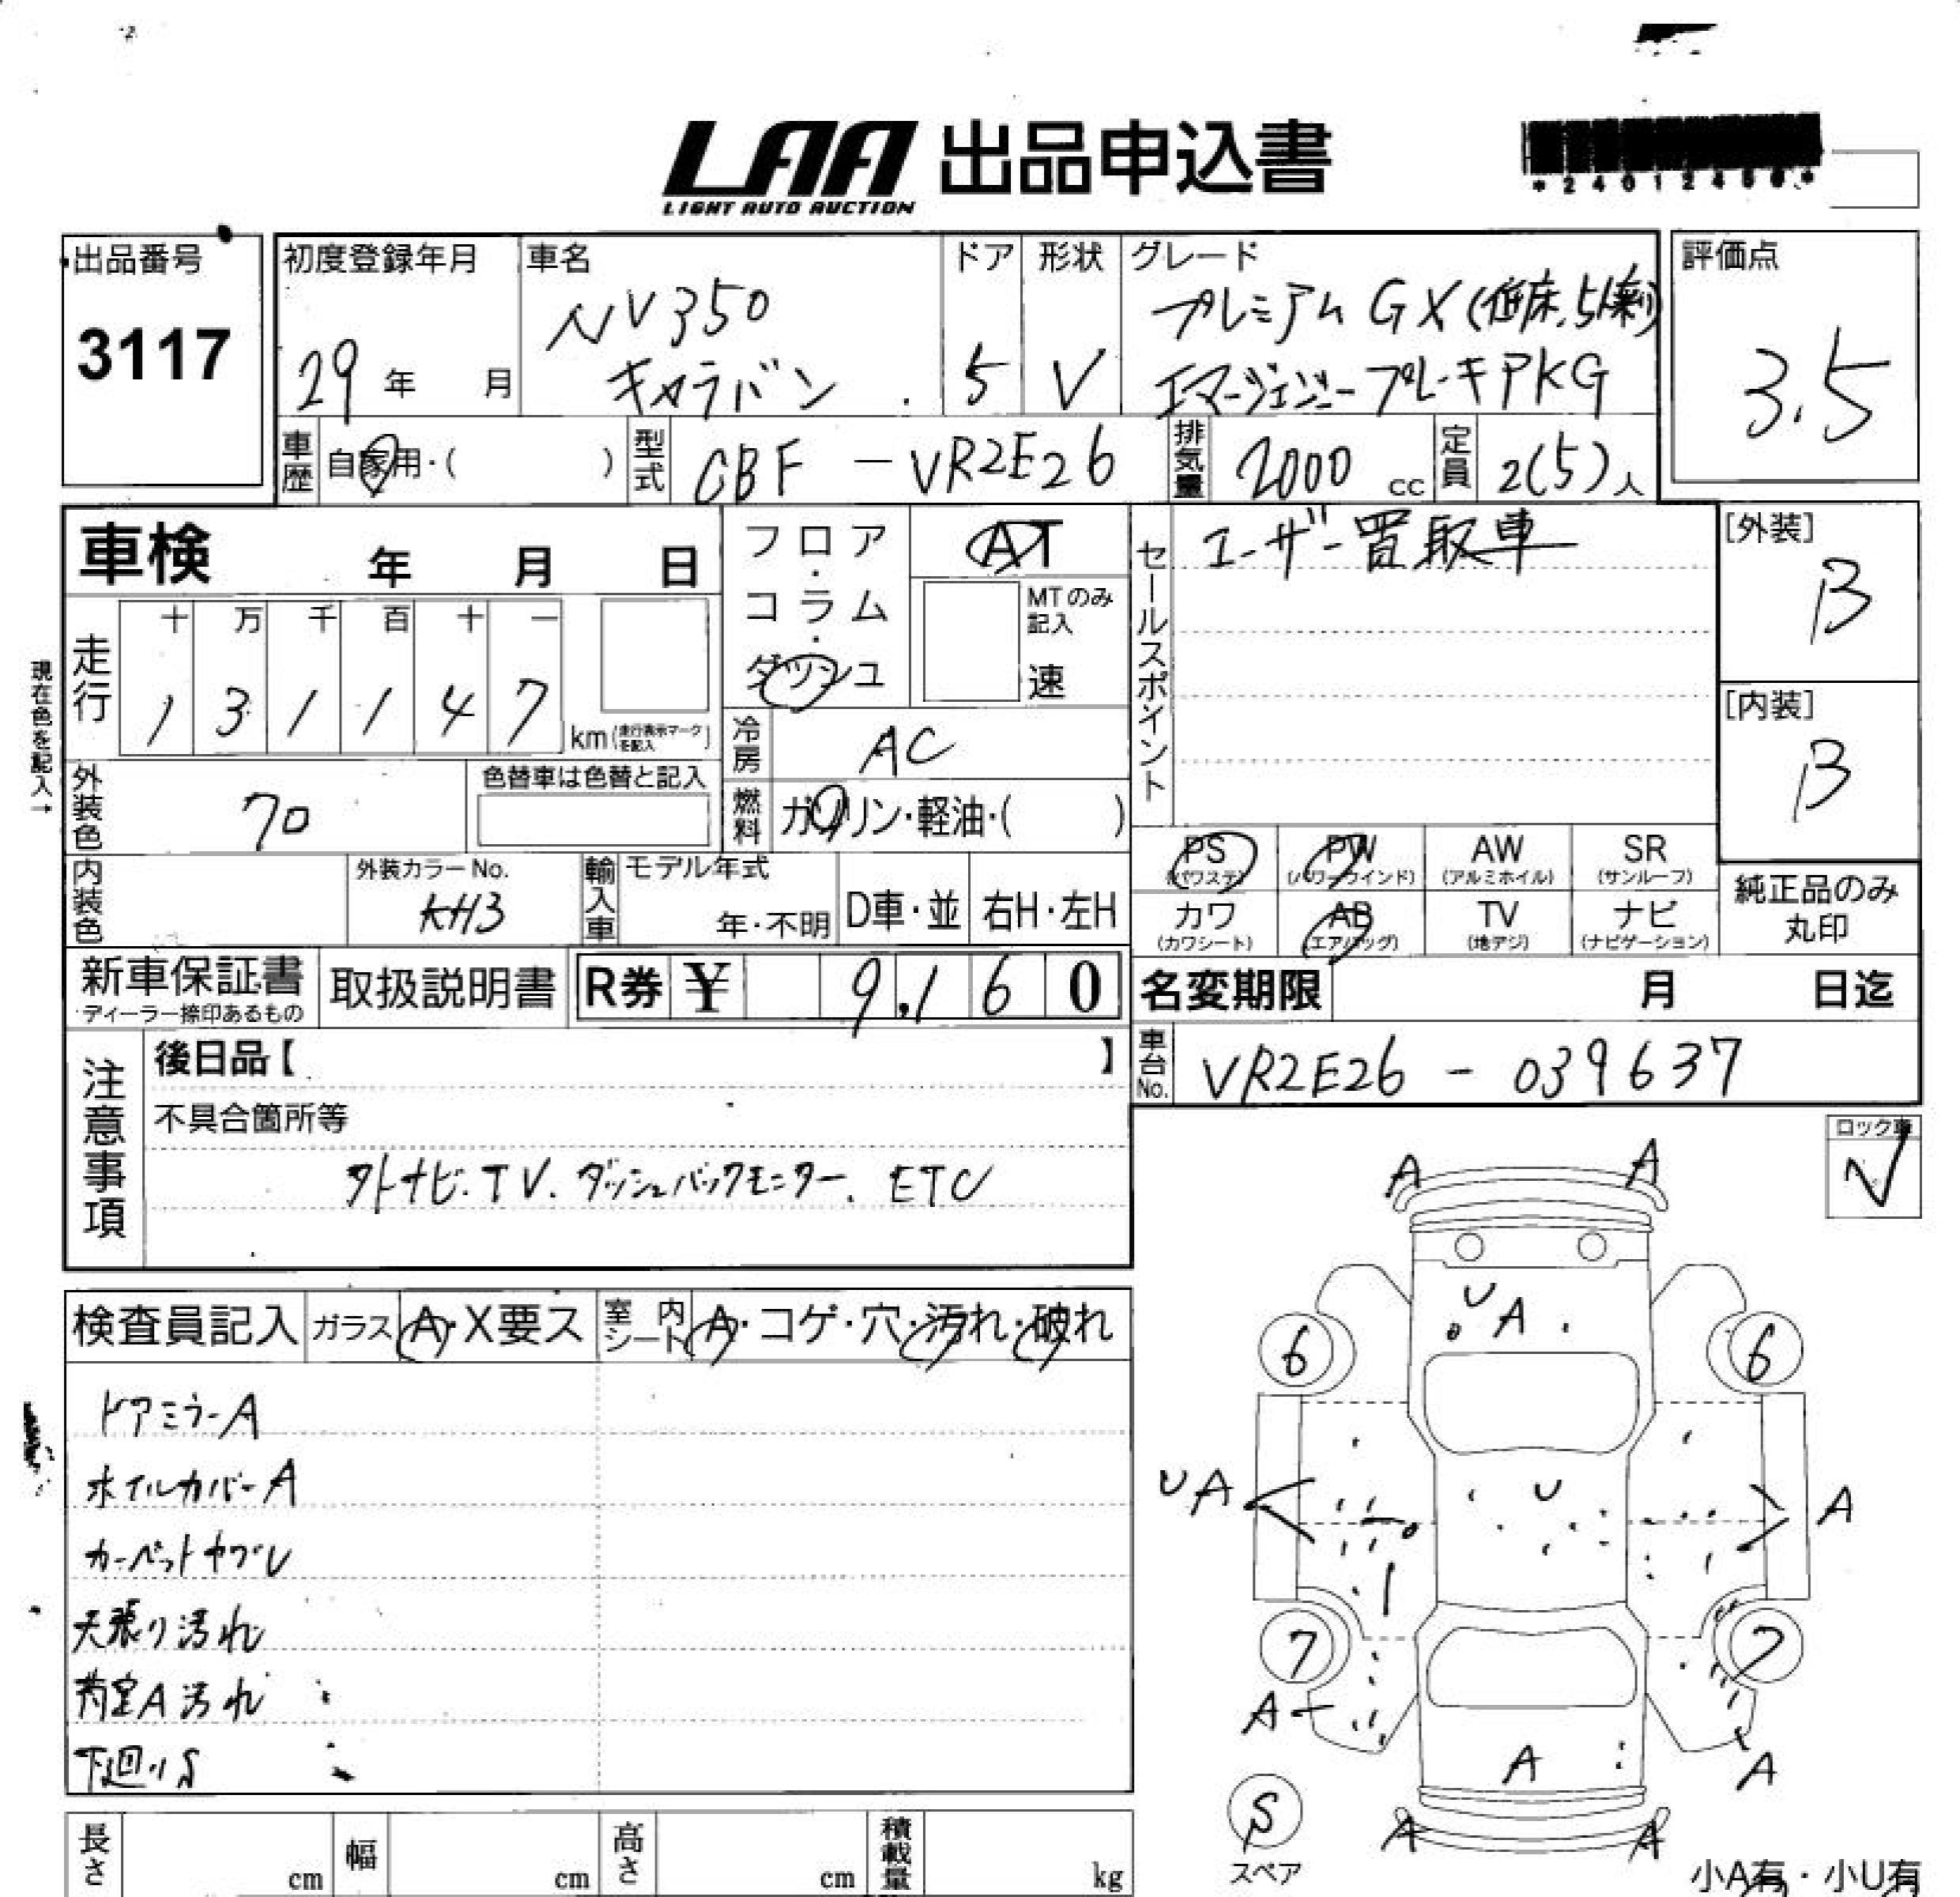 LAA 出品申込書
LIGHT AUTO AUCTION
出品番号
3117
初度登録年月
29年 月
車名
NV350
キャラバン
ドア
5
形状
V
グレード
プレミアムGX(低床.5人乗り)
エマージェンシーブレーキPKG
評価点
3.5
車歴 自家用・( )
型式 CBF-VR2E26
排気量 2000 cc
定員 2(5)人
車検 年 月 日
走行
十 万 千 百 十 一
1 3 1 1 4 7
km(走行表示マークを記入)
現在色を記入→
フロア・コラム・ダッシュ
AT
MTのみ記入
速
冷房 AC
燃料 ガソリン・軽油・( )
セールスポイント
ユーザー買取車
[外装]
B
[内装]
B
外装色 クロ
色替車は色替と記入
内装色
外装カラーNo.
KH3
輸入車
モデル年式
年・不明
D車・並
右H・左H
PS
(パワステ)
PW
(パワーウインド)
AW
(アルミホイル)
SR
(サンルーフ)
カワ
(カワシート)
AB
(エアバッグ)
TV
(地デジ)
ナビ
(ナビゲーション)
純正品のみ
丸印
新車保証書
ディーラー捺印あるもの
取扱説明書
R券 ¥ 9,160
名変期限 月 日迄
車台No. VR2E26-039637
注意事項
後日品【 】
不具合箇所等
外ナビ.TV.ダッシュバックモニター.ETC
ロック車
検査員記入
ガラス A・X要ス
室内シート A・コゲ・穴・汚れ・破れ
ドアミラーA
ホイルカバーA
カーペットヤブレ
天張り汚れ
荷室A汚れ
下廻りS
A A
U
A
6 6
U A
U
A
7 7
A
A
A
A A
S
スペア
小A有・小U有
長さ cm
幅 cm
高さ cm
積載量 kg